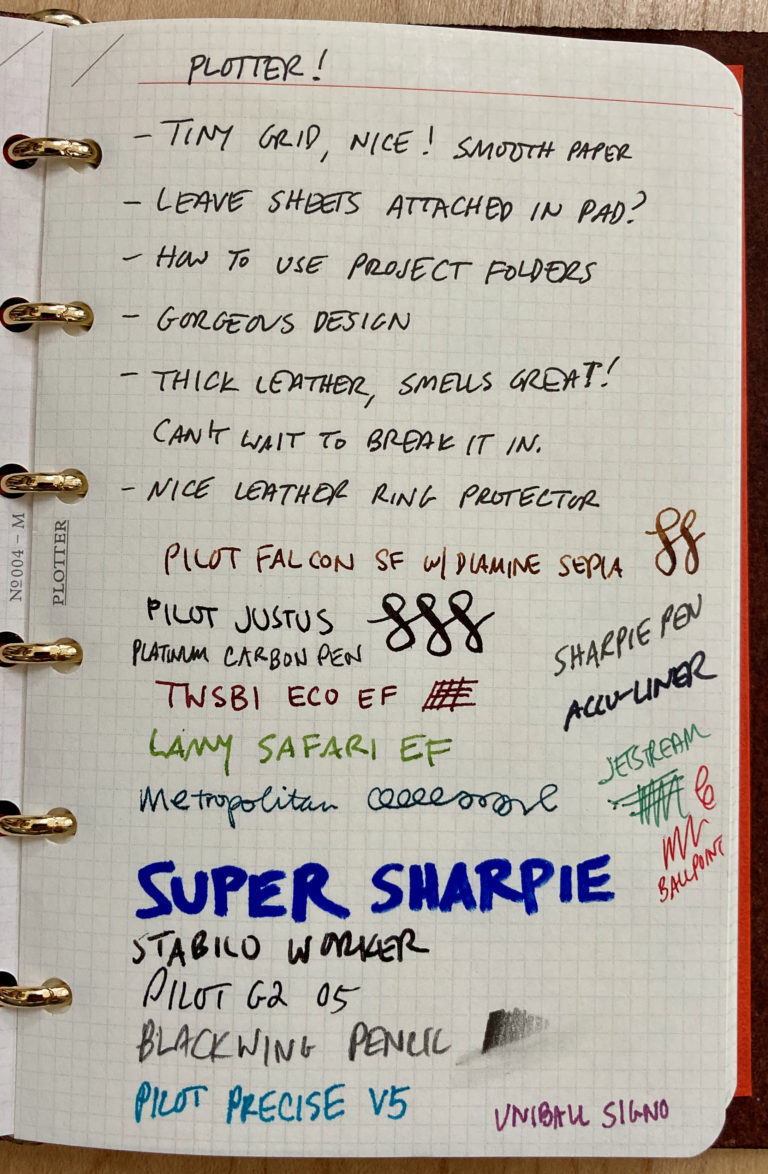 PLOTTER!
- TINY GRID, NICE! SMOOTH PAPER
- LEAVE SHEETS ATTACHED IN PAD?
- HOW TO USE PROJECT FOLDERS
- GORGEOUS DESIGN
- THICK LEATHER, SMELLS GREAT!
CAN'T WAIT TO BREAK IT IN.
- NICE LEATHER RING PROTECTOR
Nº004 – M
PLOTTER
PILOT FALCON SF W/ DIAMINE SEPIA
PILOT JUSTUS
PLATINUM CARBON PEN
SHARPIE PEN
TWSBI ECO EF
ACCU-LINER
LAMY SAFARI EF
JETSTREAM
Metropolitan
BALLPOINT
SUPER SHARPIE
STABILO WORKER
PILOT G2 05
BLACKWING PENCIL
PILOT PRECISE V5
UNIBALL SIGNO